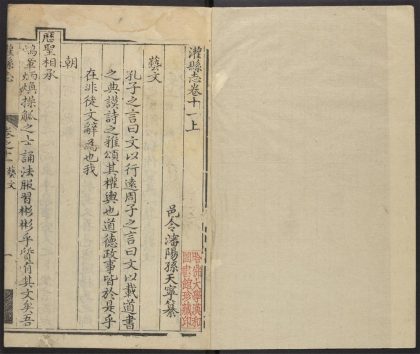 灌縣志卷十一上
邑令瀋陽孫天寧纂
藝文
孔子之言曰文以行遠周子之言曰文以載道書
之典謨詩之雅頌其權輿也道德政事皆於是乎
在非徒文辭為也我
朝
歷聖相承
鴻筆炳煥操觚之士誦法服習彬彬乎皆有其文矣吾
灌縣志
卷之十一藝文
哈佛大學漢和圖書館珍藏印